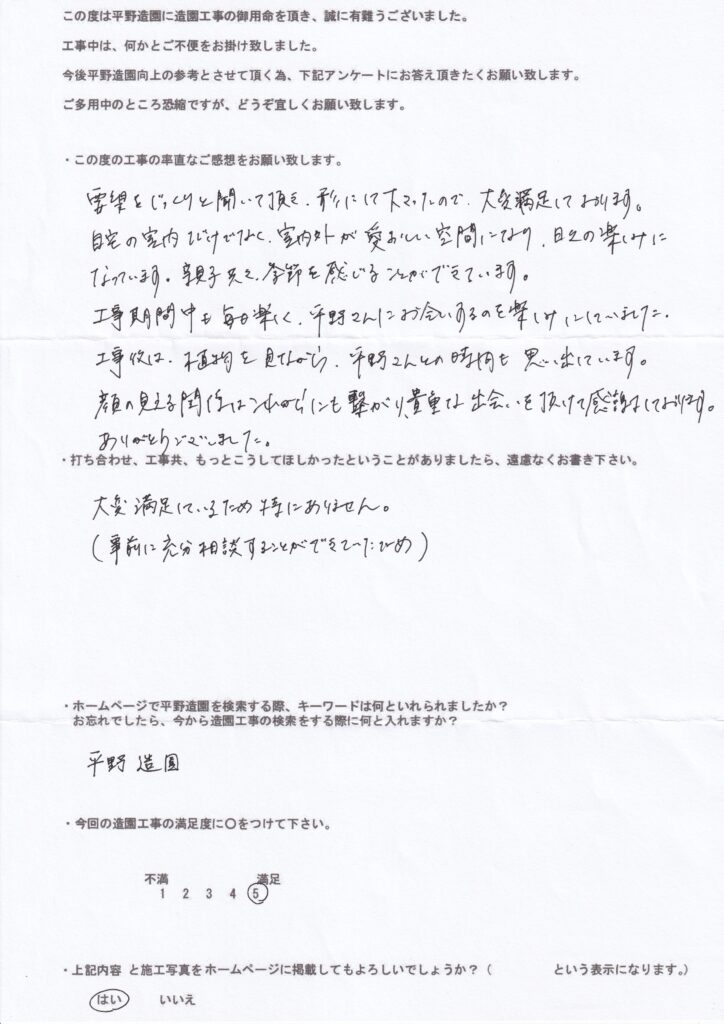 この度は平野造園に造園工事の御用命を頂き、誠に有難うございました。
工事中は、何かとご不便をお掛け致しました。
今後平野造園向上の参考とさせて頂く為、下記アンケートにお答え頂きたくお願い致します。
ご多用中のところ恐縮ですが、どうぞ宜しくお願い致します。
・この度の工事の率直なご感想をお願い致します。
要望をじっくりと聞いて頂き、形にして下さったので、大変満足しております。
自宅の室内だけでなく、室内外が愛おしい空間になり、日々の楽しみに
なっています。親子共々、季節を感じることができています。
工事期間中も毎日楽しく、平野さんにお会いするのを楽しみにしていました。
工事後は、植物を見ながら、平野さんとの時間も思い出しています。
顔の見える関係はこれからにも繋がり貴重な出会いを頂けて感謝しております。
ありがとうございました。
・打ち合わせ、工事共、もっとこうしてほしかったということがありましたら、遠慮なくお書き下さい。
大変満足しているため特にありません。
(事前に充分相談することができていたため)
・ホームページで平野造園を検索する際、キーワードは何といれられましたか？
お忘れでしたら、今から造園工事の検索をする際に何と入れますか？
平野造園
・今回の造園工事の満足度に〇をつけて下さい。
不満 満足
1 2 3 4 5
・上記内容 と施工写真をホームページに掲載してもよろしいでしょうか？（ という表示になります。）
はい いいえ